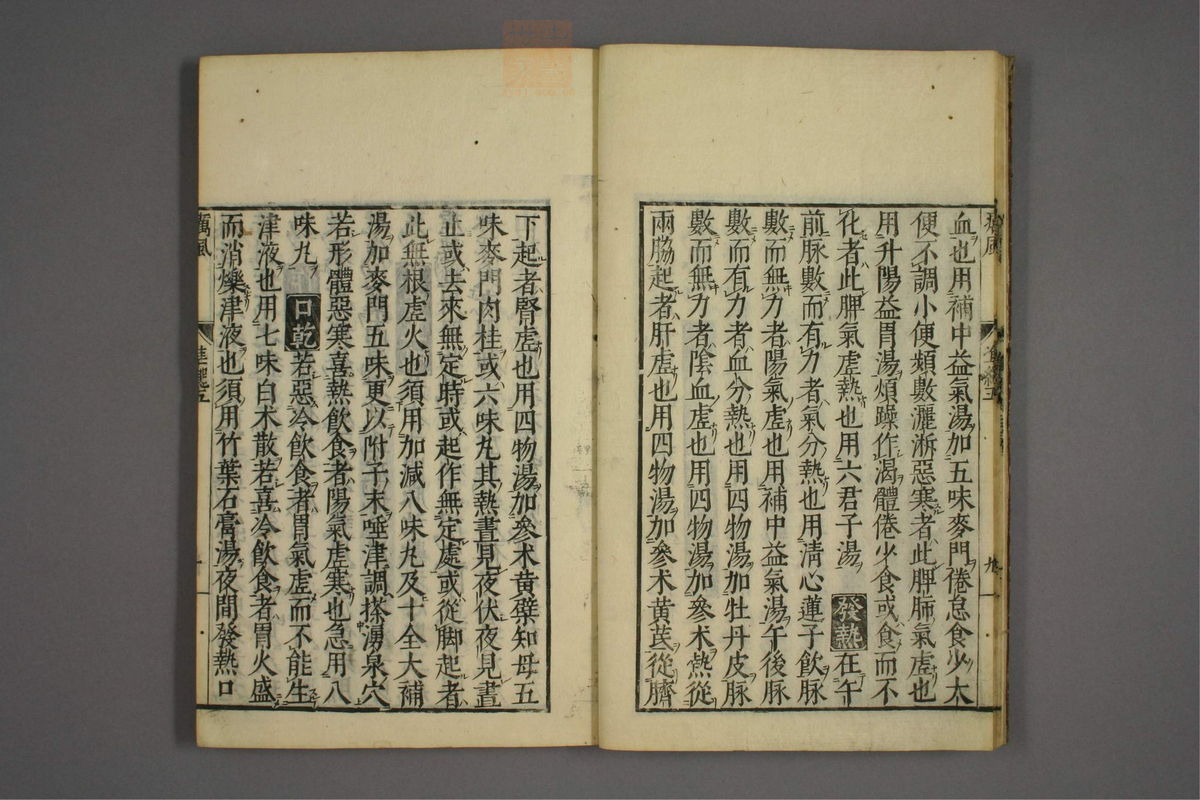 血也用補中益氣湯加五味麥門倦怠食少大
便不調小便頻數灑淅惡寒者此脾肺氣虛也
用升陽益胃湯煩躁作渴體倦少食或食而不
化者此脾氣虛熱也用六君子湯 發熱 在午
前脉數而有力者氣分熱也用清心蓮子飲脉
數而無力者陽氣虛也用補中益氣湯午後脉
數而有力者血分熱也用四物湯加牡丹皮脉
數而無力者陰血虛也用四物湯加參朮熱從
兩脇起者肝虛也用四物湯加參朮黃芪從臍
下起者腎虛也用四物湯加參朮黃蘗知母五
味麥門肉桂或六味丸其熱晝見夜伏夜見晝
止或去來無定時或起作無定處或從脚起者
此無根虛火也須用加減八味丸及十全大補
湯加麥門五味更以附子末唾津調搽湧泉穴
若形體惡寒喜熱飲食者陽氣虛寒也急用八
味丸 口乾 若惡冷飲食者胃氣虛而不能生
津液也用七味白朮散若喜冷飲食者胃火盛
而消爍津液也須用竹葉石膏湯夜間發熱口
癘風